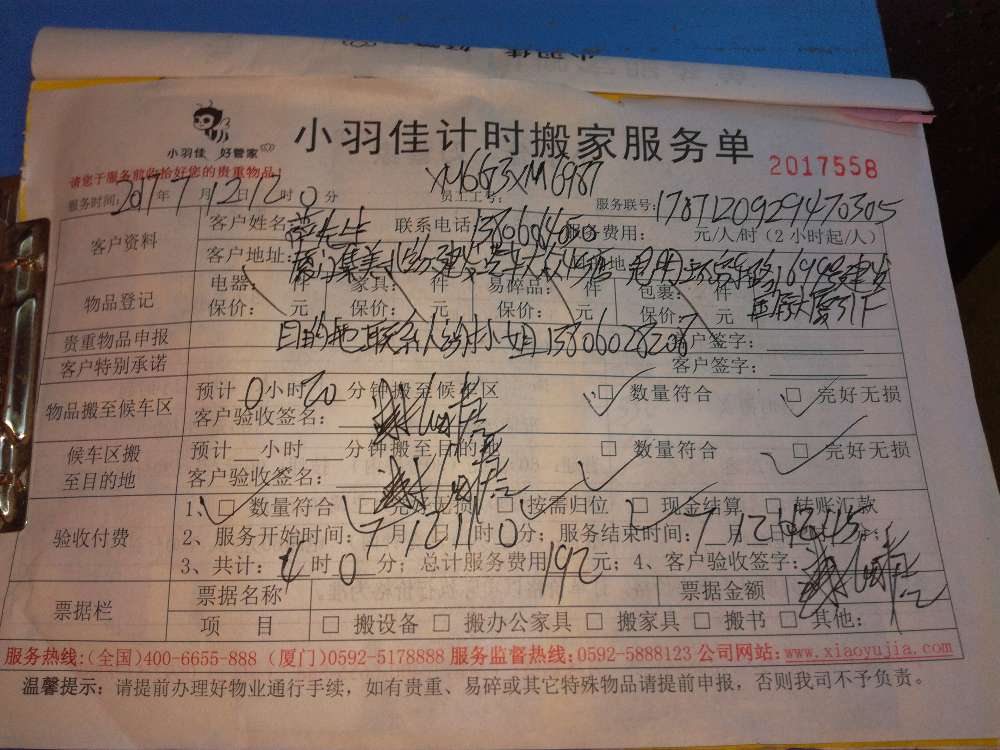 小羽佳 好管家
小羽佳计时搬家服务单
2017558
请您于服务前收拾好您的贵重物品
XM663XM6987
服务时间:2017年7月12日12时0分 员工工号: 服务联号:1787120929470305
客户资料
客户姓名: 薛先生 联系电话: 服务费用: 元/人/时(2小时起/人)
客户地址:
物品登记
电器: 件 家具: 件 易碎品: 件 包裹: 件
保价: 元 保价: 元 保价: 元 保价: 元
贵重物品申报 目的地联系人 小姐13806028208 客户签字:
客户特别承诺 客户签字:
物品搬至候车区
预计0小时20分钟搬至候车区 □ 数量符合 □ 完好无损
客户验收签名:
候车区搬至目的地
预计 小时 分钟搬至目的地 □ 数量符合 □ 完好无损
客户验收签名:
验收付费
1、□ 数量符合 □ 完好无损 □ 按需归位 □ 现金结算 □ 转账汇款
2、服务开始时间:7月12日11时0分;服务结束时间:7月12日 时45分;
3、共计: 时0分;总计服务费用192元;4、客户验收签字:
票据栏
票据名称 票据金额
项 目 □ 搬设备 □ 搬办公家具 □ 搬家具 □ 搬书 □ 其他:
服务热线:(全国)400-6655-888 (厦门)0592-5178888 服务监督热线:0592-5888123 公司网站:www.xiaoyujia.com
温馨提示:请提前办理好物业通行手续,如有贵重、易碎或其它特殊物品请提前申报,否则我司不予负责。